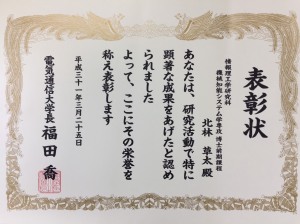 表彰状
情報理工学研究科
機械知能システム学専攻 博士前期課程
北林 草太 殿
あなたは、研究活動で特に
顕著な成果をあげたと認め
られました
よって、ここにその栄誉を
称え表彰します
平成三十一年三月二十五日
電気通信大学長 福田 喬